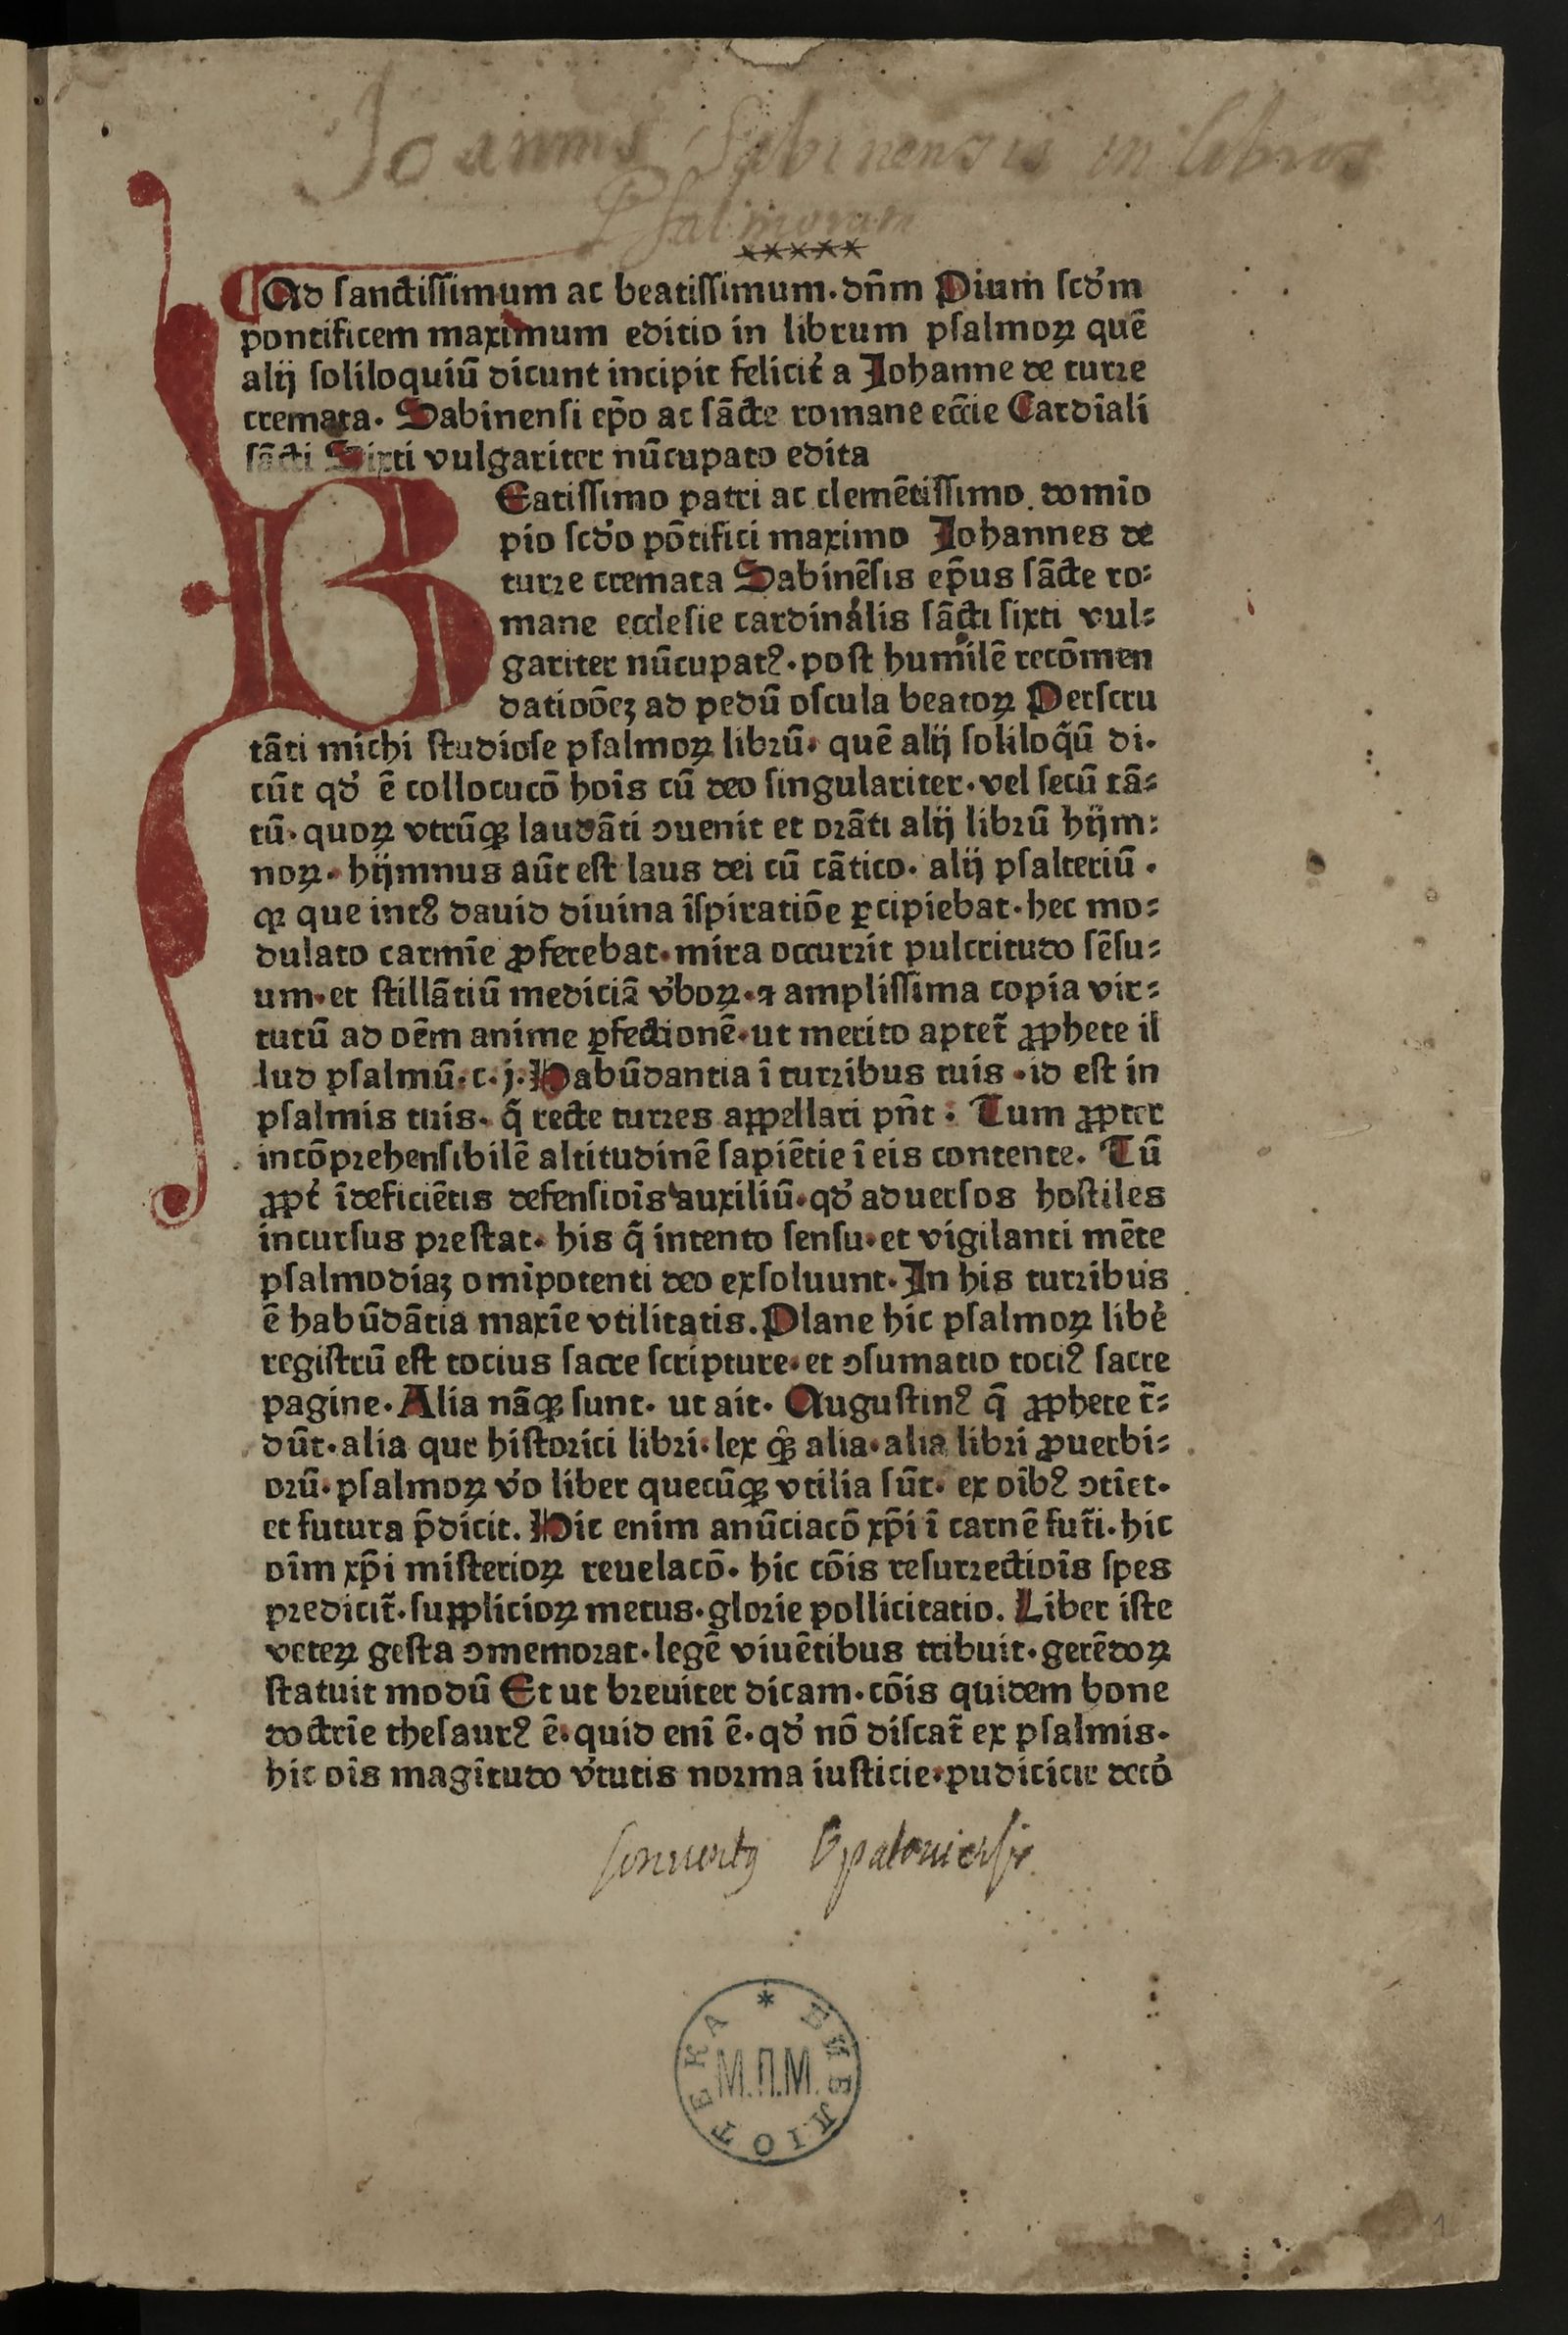 Joannis Sabinensis in libros
Psalmorum
×××××
Ad sanctissimum ac beatissimum. dñm Pium scd̕m
pontificem maximum editio in librum psalmoꝝ quē
alij soliloquiū dicunt incipit felicit̕ a Johanne de turre
cremata. Sabinensi ep̄o ac sāc̄te romane ecc̄ie Cardīali
sācti Sixti vulgariter nūcupato edita
BEatissimo patri ac clemētissimo. domīo
pio scd̕o pōtifici maximo Johannes de
turre cremata Sabinēsis ep̄us sācte ro⸗
mane ecclesie cardinalis sācti sixti vul⸗
gariter nūcupatꝰ. post humilē recōmen
datioōeꝫ ad pedū oscula beatoꝝ Perscru
tāti michi studiose psalmoꝝ librū. quē alij soliloq̄ū di.
cūt qd̕ ē collocucō hoīs cū deo singulariter. vel secū tā⸗
tū. quoꝝ vtrūqꝫ laudāti ꝯuenit et orāti alij librū hijm⸗
noꝝ. hijmnus aūt est laus dei cū cātico. alij psalteriū.
qꝛ que intꝰ dauid diuina īspiratiōe ꝑcipiebat. hec mo⸗
dulato carmīe ꝓferebat. mira occurrit pulcritudo sēsu⸗
um. et stillātiū mediciā v̕boꝝ. ⁊ amplissima copia vir⸗
tutū ad oēm anime ꝑfectionē. ut merito aptet̄ ꝓphete il
lud psalmū. c. j. Habūdantia ī turribus tuis. id est in
psalmis tuis. q̄ recte turres appellari pn̄t. Tum ꝓpter
incōprehensibilē altitudinē sapiētie ī eis contente. Tū
ꝓpt̕ īdeficiētis defensiōis auxiliū. qd̕ aduersos hostiles
incursus prestat. his q̄ intento sensu. et vigilanti mēte
psalmodiaꝫ omīpotenti deo exsoluunt. In his turribus
ē habūdātia maxīe vtilitatis. Plane hic psalmoꝝ libē
registrū est tocius sacre scripture. et ꝯsumatio tociꝰ sacre
pagine. Alia nāqꝫ sunt. ut ait. Augustinꝰ q̄ ꝓphete t̄⸗
dūt. alia que historici libri. lex qꝫ alia. alia libri ꝓuerbi⸗
orū. psalmoꝝ v̕o liber quecūqꝫ vtilia sūt. ex oībꝰ ꝯtīet.
et futura p̄dicit. Hic enim anūciacō xp̄i ī carnē fut̄i. hic
oīm xp̄i misterioꝝ reuelacō. hic cōis resurrectiōis spes
predicit̄. supplicioꝝ metus. glorie pollicitatio. Liber iste
veteꝝ gesta ꝯmemorat. legē viuētibus tribuit. gerēdoꝝ
statuit modū Et ut breuiter dicam. cōis quidem bone
doctrīe thesaurꝰ ē. quid enī ē. qd̕ nō discat̄ ex psalmis.
hic oīs magītudo v̕tutis norma iusticie. pudicicie decō
Conventq Opatoviensis
БИБЛІОТЕКА
М.П.М.
1